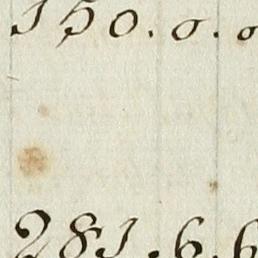 150.0.0
281.6.6